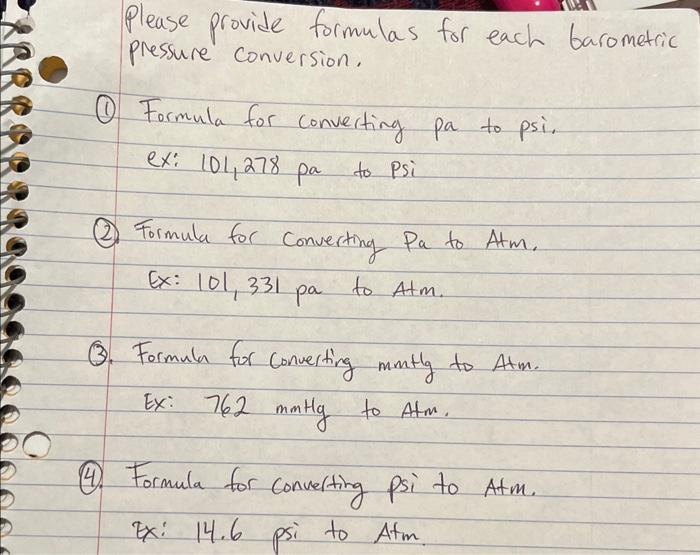 Please provide formulas for each barometric
pressure conversion.
① Formula for converting pa to psi.
ex: 101,278 pa to Psi
② Formula for converting Pa to Atm.
Ex: 101,331 pa to Atm.
③. Formula for converting mmHg to Atm.
Ex: 762 mmHg to Atm.
④. Formula for converting psi to Atm.
Ex: 14.6 psi to Atm.